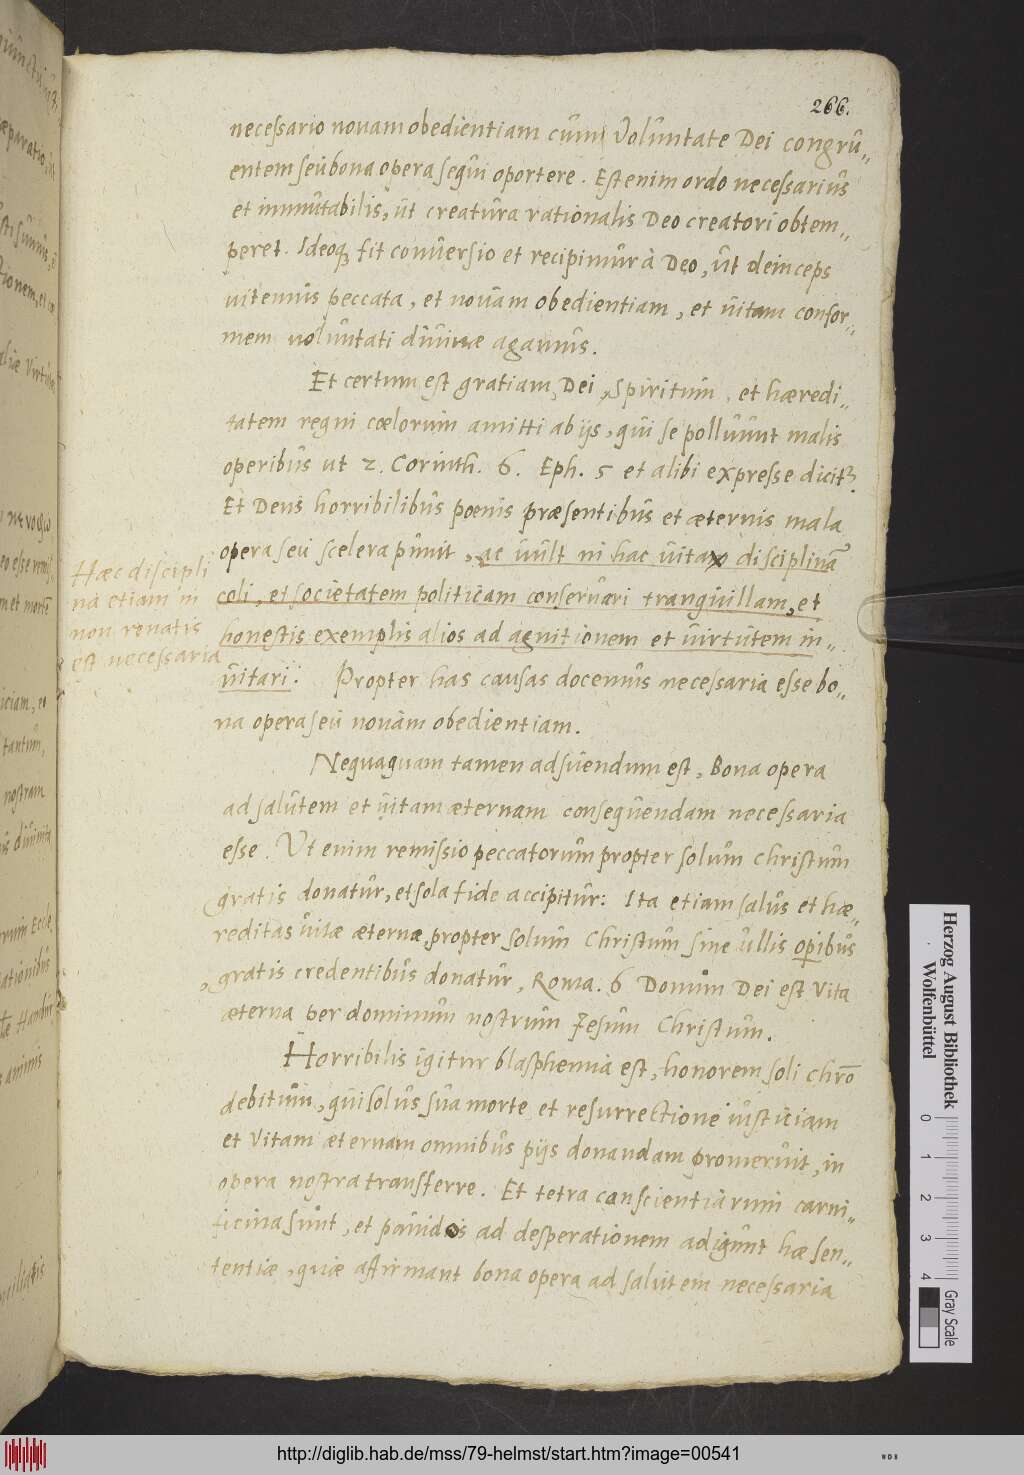 266.
necessario novam obedientiam cum Voluntate Dei congru„
entem seu bona opera sequi oportere. Est enim ordo necessarius
et immutabilis, ut creatura rationalis Deo creatori obtem„
peret. Ideoq; fit conversio et recipimur à Deo, ut deinceps
vitemus peccata, et novam obedientiam, et vitam confor„
mem voluntati divinæ agamus.
Et certum est gratiam, Dei, Spiritum, et hæredi„
tatem regni cœlorum amitti ab ijs, qui se polluunt malis
operibus ut 2. Corinth. 6. Eph. 5 et alibi expresse dicitr.
Et Deus horribilibus pœnis præsentibus et æternis mala
opera seu scelera punit, ac vult in hac vita disciplinā
coli, et societatem politicam conservari tranquillam, et
honestis exemplis alios ad agnitionem et virtutem in„
vitari. Propter has causas docemus necessaria esse bo„
na opera seu novam obedientiam.
Hæc discipli
na etiam in
non renatis
est necessaria
Nequaquam tamen adsuendum est, Bona opera
ad salutem et vitam æternam consequendam necessaria
esse. Ut enim remissio peccatorum propter solum Christum
gratis donatur, et sola fide accipitur: Ita etiam salus et hæ„
reditas vitæ æternæ, propter solum Christum sine ullis opibus
gratis credentibus donatur, Roma. 6 Donum Dei est Vita
æterna per dominum nostrum Jesum Christum.
Horribilis igitur blasphemia est, honorem soli chrō
debitum, qui solus sua morte et resurrectione iusticiam
et Vitam æternam omnibus pijs donandam promeruit, in
opera nostra transferre. Et tetra conscientiarum carni„
ficina sunt, et pavidos ad desperationem adigunt hæ sen„
tentiæ, quæ affirmant bona opera ad salutem necessaria
Herzog August Bibliothek
Wolfenbüttel
0 1 2 3 4
Gray Scale
http://diglib.hab.de/mss/79-helmst/start.htm?image=00541